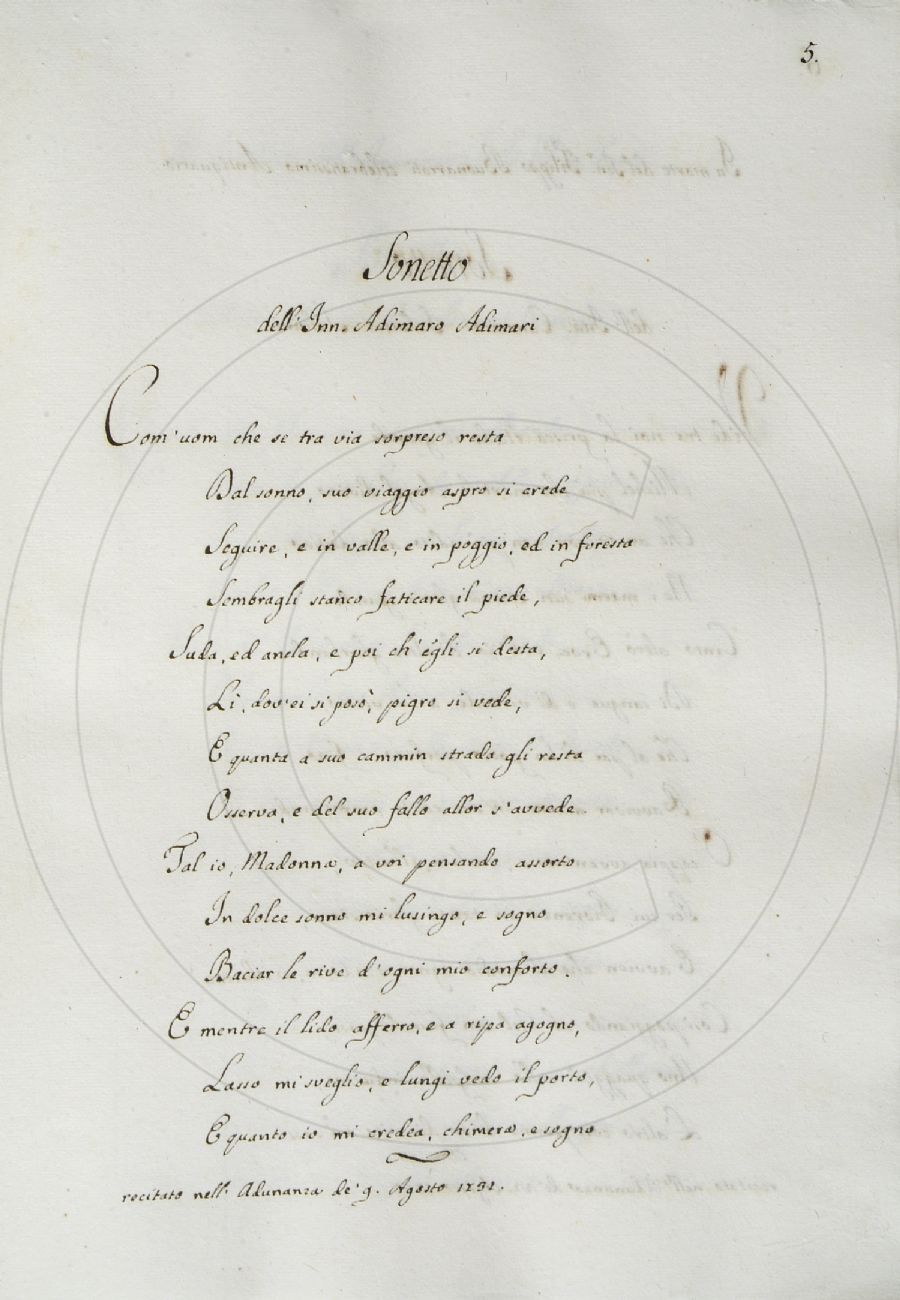 5.
Sonetto
dell'Inn. Adimaro Adimari
Com'uom che se tra via sorpreso resta
Dal sonno, suo viaggio aspro si crede
Seguire, e in valle, e in poggio, ed in foresta
Sembragli stanco faticare il piede,
Suda, ed anela, e poi ch'égli si desta,
Lì, dov'ei si posò, pigro si vede,
E quanta a suo cammin strada gli resta
Osserva, e del suo fallo allor s'avvede
Tal io, Madonna, a voi pensando assorto
In dolce sonno mi lusingo, e sogno
Baciar le rive d'ogni mio conforto.
E mentre il lido afferro, e a ripa agogno,
Lasso mi sveglio, e lungi vedo il porto,
E quanto io mi credea, chimera, e sogno
recitato nell'Adunanza de' 9. Agosto